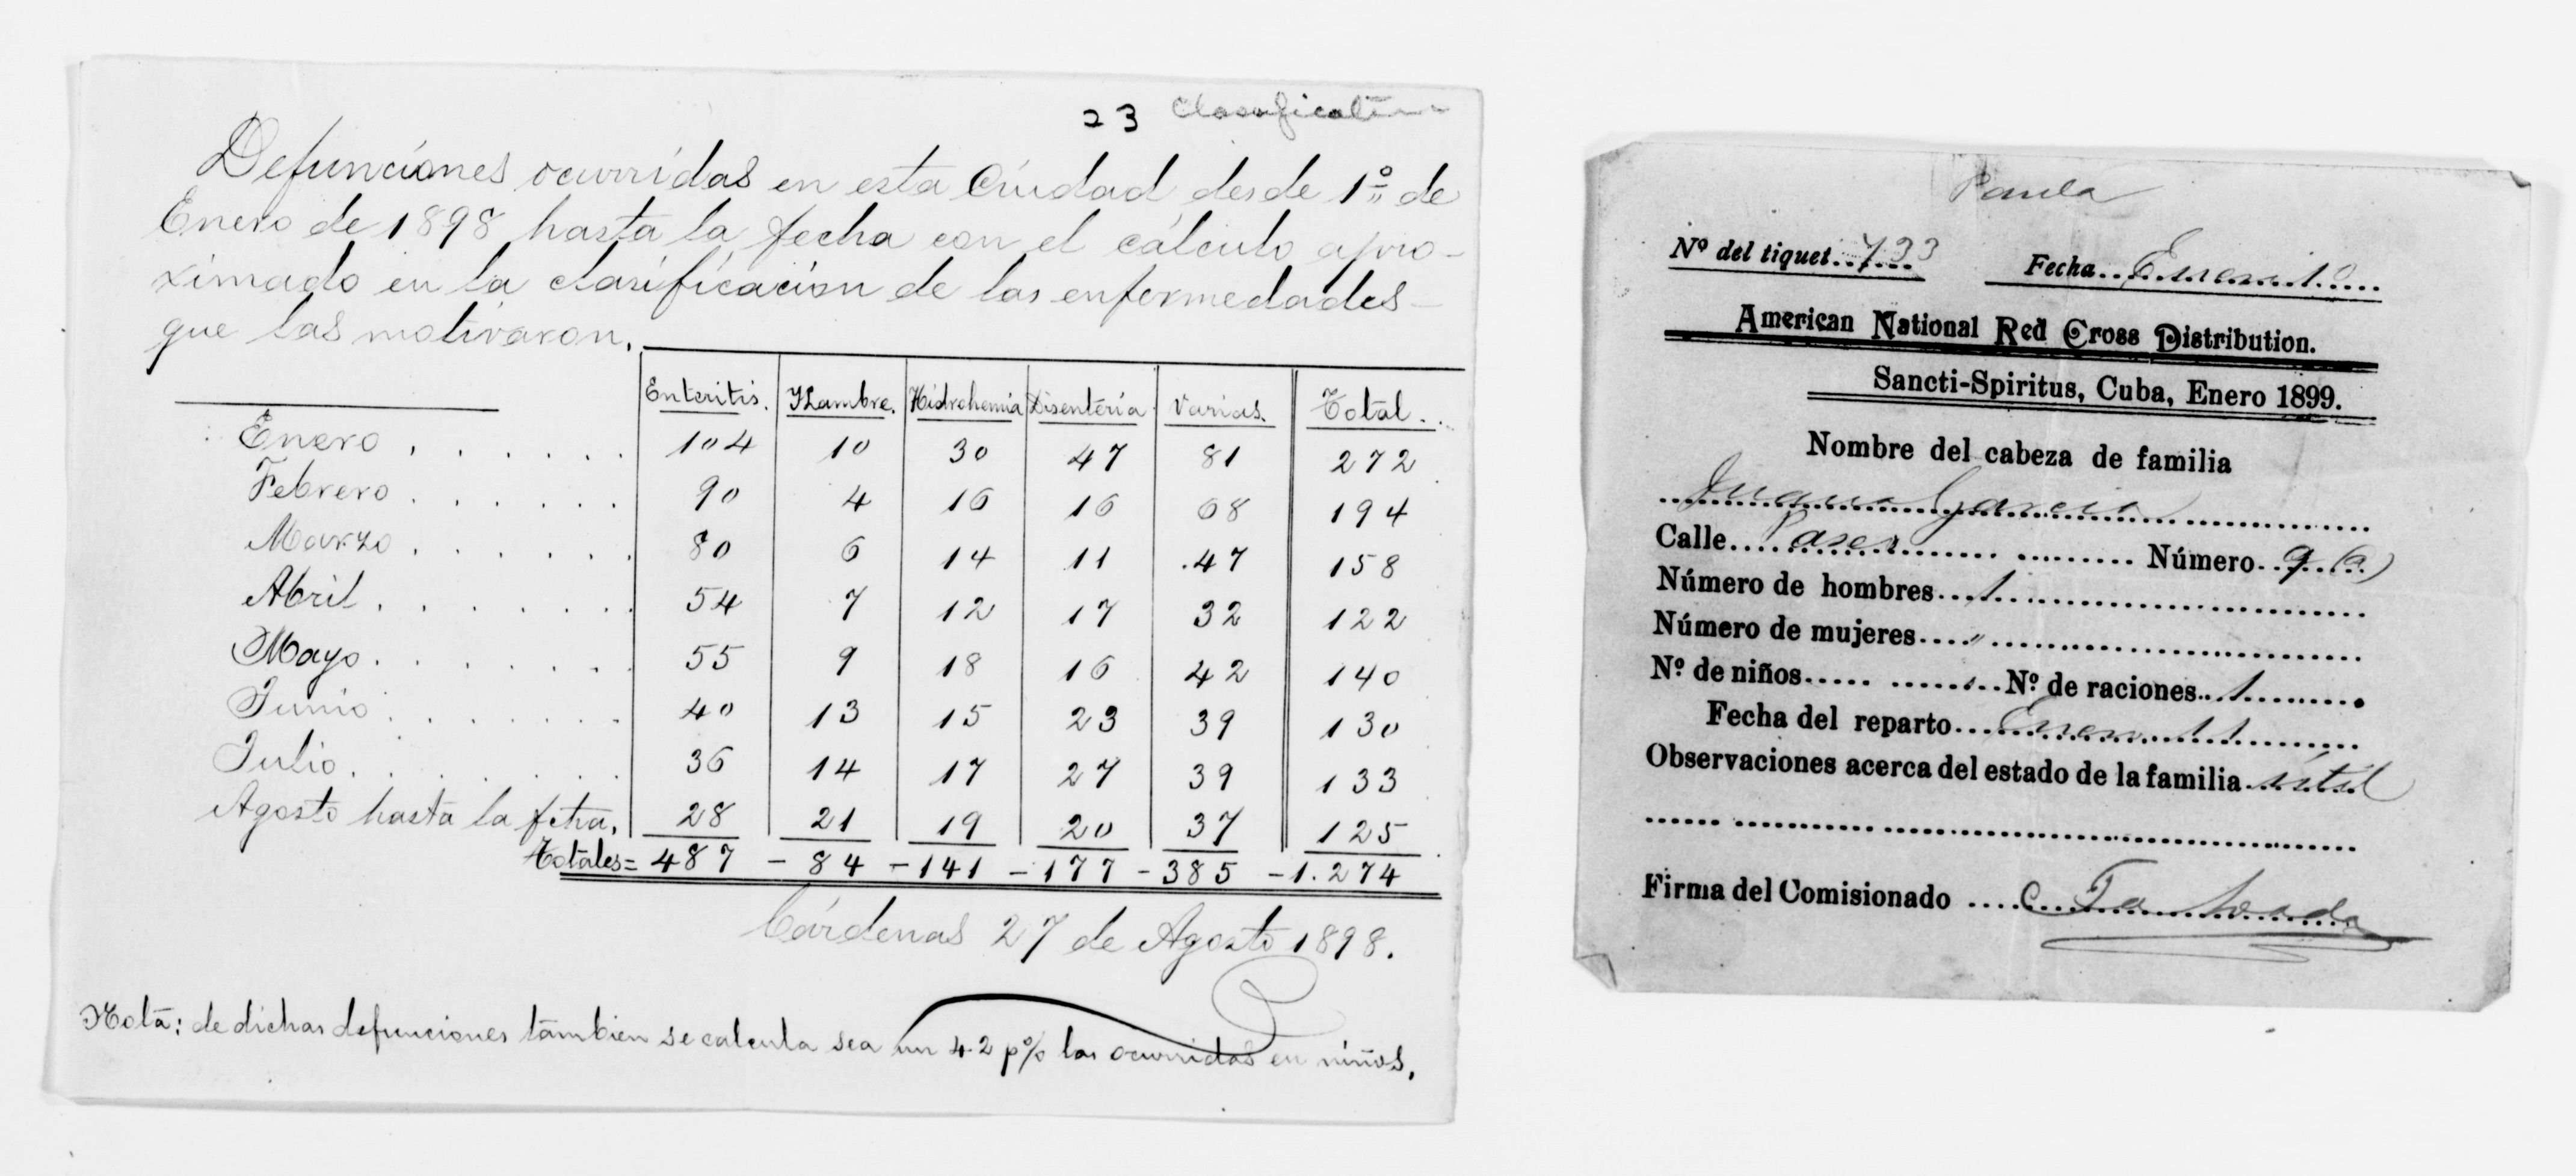 23 Clasification
Defunciones ocurridas en esta Ciudad desde 1º de
Enero de 1898 hasta la fecha con el cálculo apro-
ximado en la clasificacion de las enfermedades
que las motivaron.
Enteritis. Hambre. Hidrohemia Disenteria Varias. Total.
Enero . . . . . . 104 10 30 47 81 272
Febrero . . . . . . 90 4 16 16 68 194
Marzo . . . . . . 80 6 14 11 47 158
Abril . . . . . . . 54 7 12 17 32 122
Mayo . . . . . . 55 9 18 16 42 140
Junio . . . . . . . 40 13 15 23 39 130
Julio . . . . . . . 36 14 17 27 39 133
Agosto hasta la fecha. 28 21 19 20 37 125
Totales = 487 - 84 - 141 - 177 - 385 - 1.274
Cárdenas 27 de Agosto 1898.
Nota: de dichas defunciones tambien se calcula sea un 42 p% las ocurridas en niños.
Paula
Nº del tiquet 733 Fecha Enero 10
American National Red Cross Distribution.
Sancti-Spiritus, Cuba, Enero 1899.
Nombre del cabeza de familia
Juana Garcia
Calle Número 9 (a)
Número de hombres 1
Número de mujeres "
Nº de niños Nº de raciones 1
Fecha del reparto Enero 11
Observaciones acerca del estado de la familia útil
Firma del Comisionado